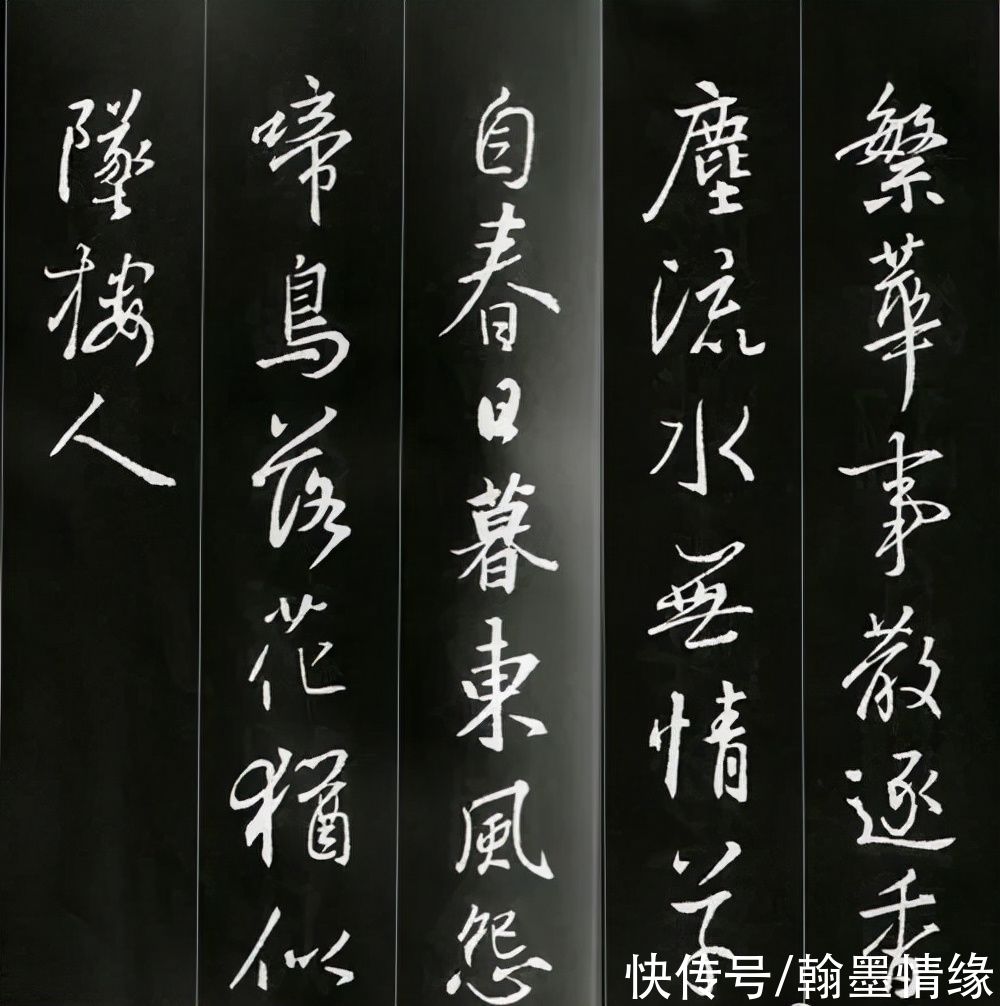 繁華事散逐香
塵流水無情草
自春日暮東風怨
啼鳥落花猶似
墜樓人
快传号/翰墨情缘